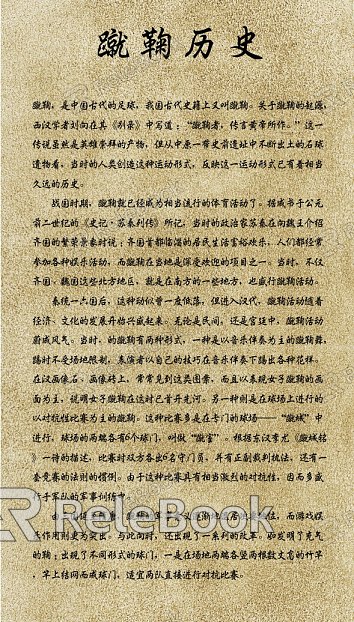 蹴鞠历史
蹴鞠，是中国古代的足球，我国古代史籍上又叫蹴鞠。关于蹴鞠的起源，
西汉学者刘向在其《别录》中写道："蹴鞠者，传言黄帝所作。"这一
传说虽然是英雄崇拜的产物，但从中原一带史前遗址中不断出土的石球
遗物看，当时的人类创造这种运动形式，反映这一运动形式已有着相当
久远的历史。
战国时期，蹴鞠就已经成为相当流行的体育活动了。据成书于公元
前二世纪的《史记·苏秦列传》所记，当时的政治家苏秦在向魏王介绍
齐国的繁荣景象时说：齐国首都临淄的居民生活富裕欢乐，人们都经常
参加各种娱乐活动，而蹴鞠在当地是深受欢迎的项目之一。当时，不仅
齐国、魏国这些北方地区，就是在南方的一些地方，也盛行蹴鞠活动。
秦统一六国后，这种动曾一度低落，但进入汉代，蹴鞠活动随着
经济、文化的发展开始兴盛起来。无论是民间，还是宫廷中，蹴鞠活动
蔚成风气。当时，的蹴鞠有两种形式，一种是以音乐伴奏为主的蹴鞠舞，
踢时不受场地限制，表演者以自己的技巧在音乐伴奏下踢出各种花样。
在汉画像石、画像砖上，常常见到这类图案，而且以表现女子蹴鞠的画
面为主，说明女子蹴鞠在这时已普开先河。另一种则是在球场上进行的
以对抗性比赛为主的蹴鞠。这种比赛多是在卡门的球场——"蹴域"中
进行，球场的两端各有6个球门，叫做"蹴室"。根据东汉李尤《蹴城铭
》一诗的描述，比赛时双方各出6名守门员，并有正副裁判执法，还有一
套竞赛的法则的惯例。由于这种比赛具有相当激烈的对抗性，因而多盛
行于军队的军事训练中。
而游戏娱
乐作用则更为突出。与此同时，还出现了一系列的改革。如发明了充气
的鞠；出现了不同形式的球门，一是在场地两端各竖两根数丈高的竹竿
，竿上结网而成球门，适宜两队直接进行对抗比赛。
RELEBOOK